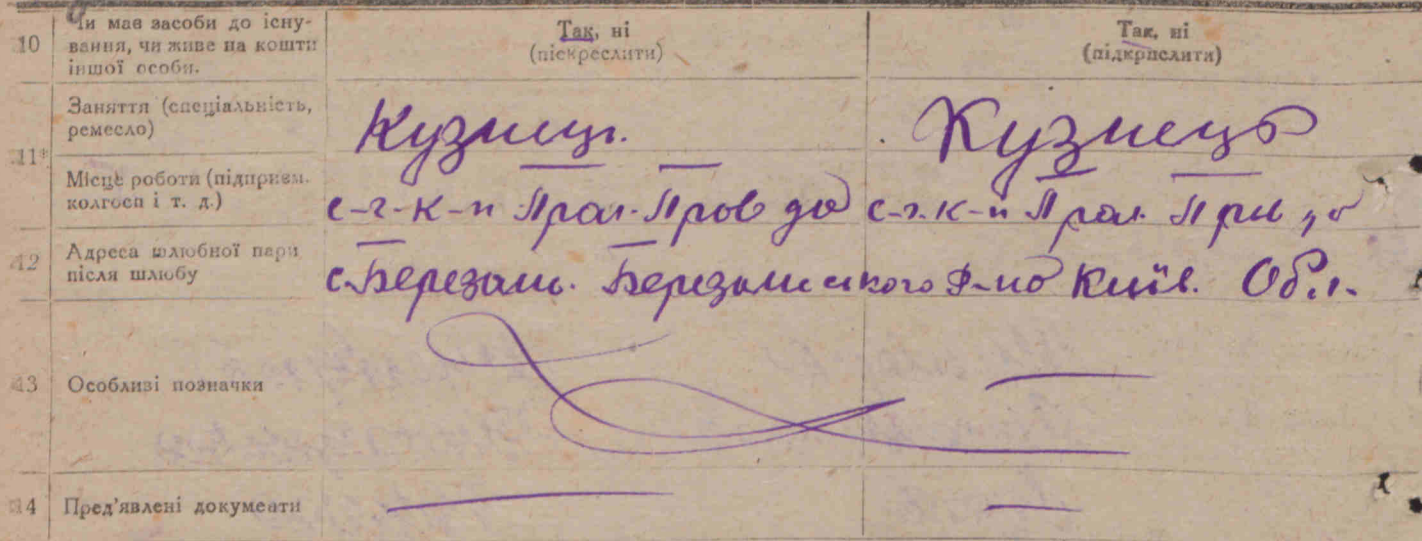 10 Чи має засоби до існу-
вання, чи живе на кошти
іншої особи.
Так, ні
(піскреслити)
Так, ні
(підкрпслити)
11* Заняття (спеціальність,
ремесло)
Кузнець.
Кузнець
Місце роботи (підприєм.
колгосп і т. д.)
с-г-к-п Прол. до
с-г. к-п Прол.
12 Адреса шлюбної пари
після шлюбу
с. Березань. Березанського Р-но Київ. Обл.
13 Особливі позначки
14 Пред'явлені документи